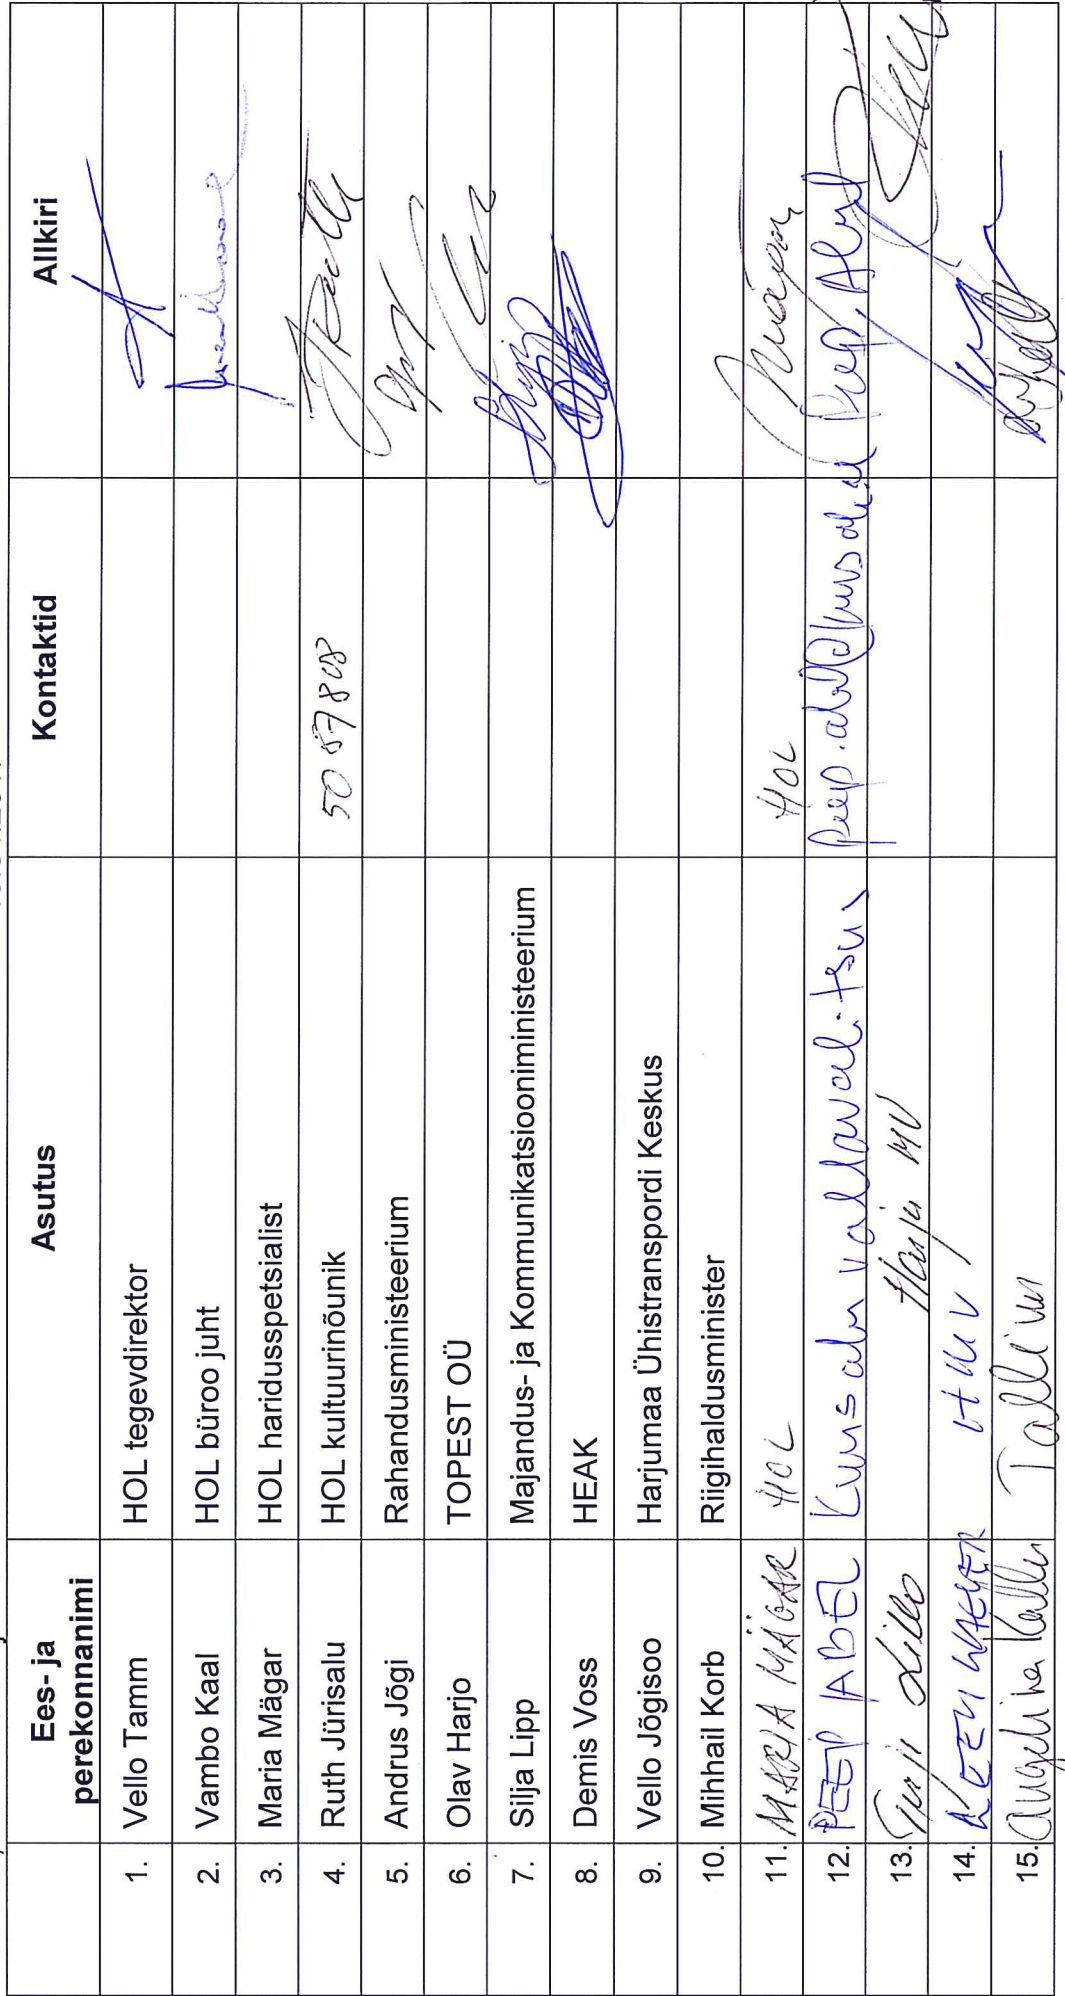 Ees- ja perekonnanimi Asutus Kontaktid Allkiri
1. Vello Tamm HOL tegevdirektor
2. Vambo Kaal HOL büroo juht
3. Maria Mägar HOL haridusspetsialist
4. Ruth Jürisalu HOL kultuurinõunik 5087808
5. Andrus Jõgi Rahandusministeerium
6. Olav Harjo TOPEST OÜ
7. Silja Lipp Majandus- ja Kommunikatsiooniministeerium
8. Demis Voss HEAK
9. Vello Jõgisoo Harjumaa Ühistranspordi Keskus
10. Mihhail Korb Riigihaldusminister
11. MARIA MÄGAR HOL HOL
12. PEEP ABEL Kuusalu vallavalitsus
13. Lillo Harju MV
14. HMV
15. Angelika Kallas Tallinn